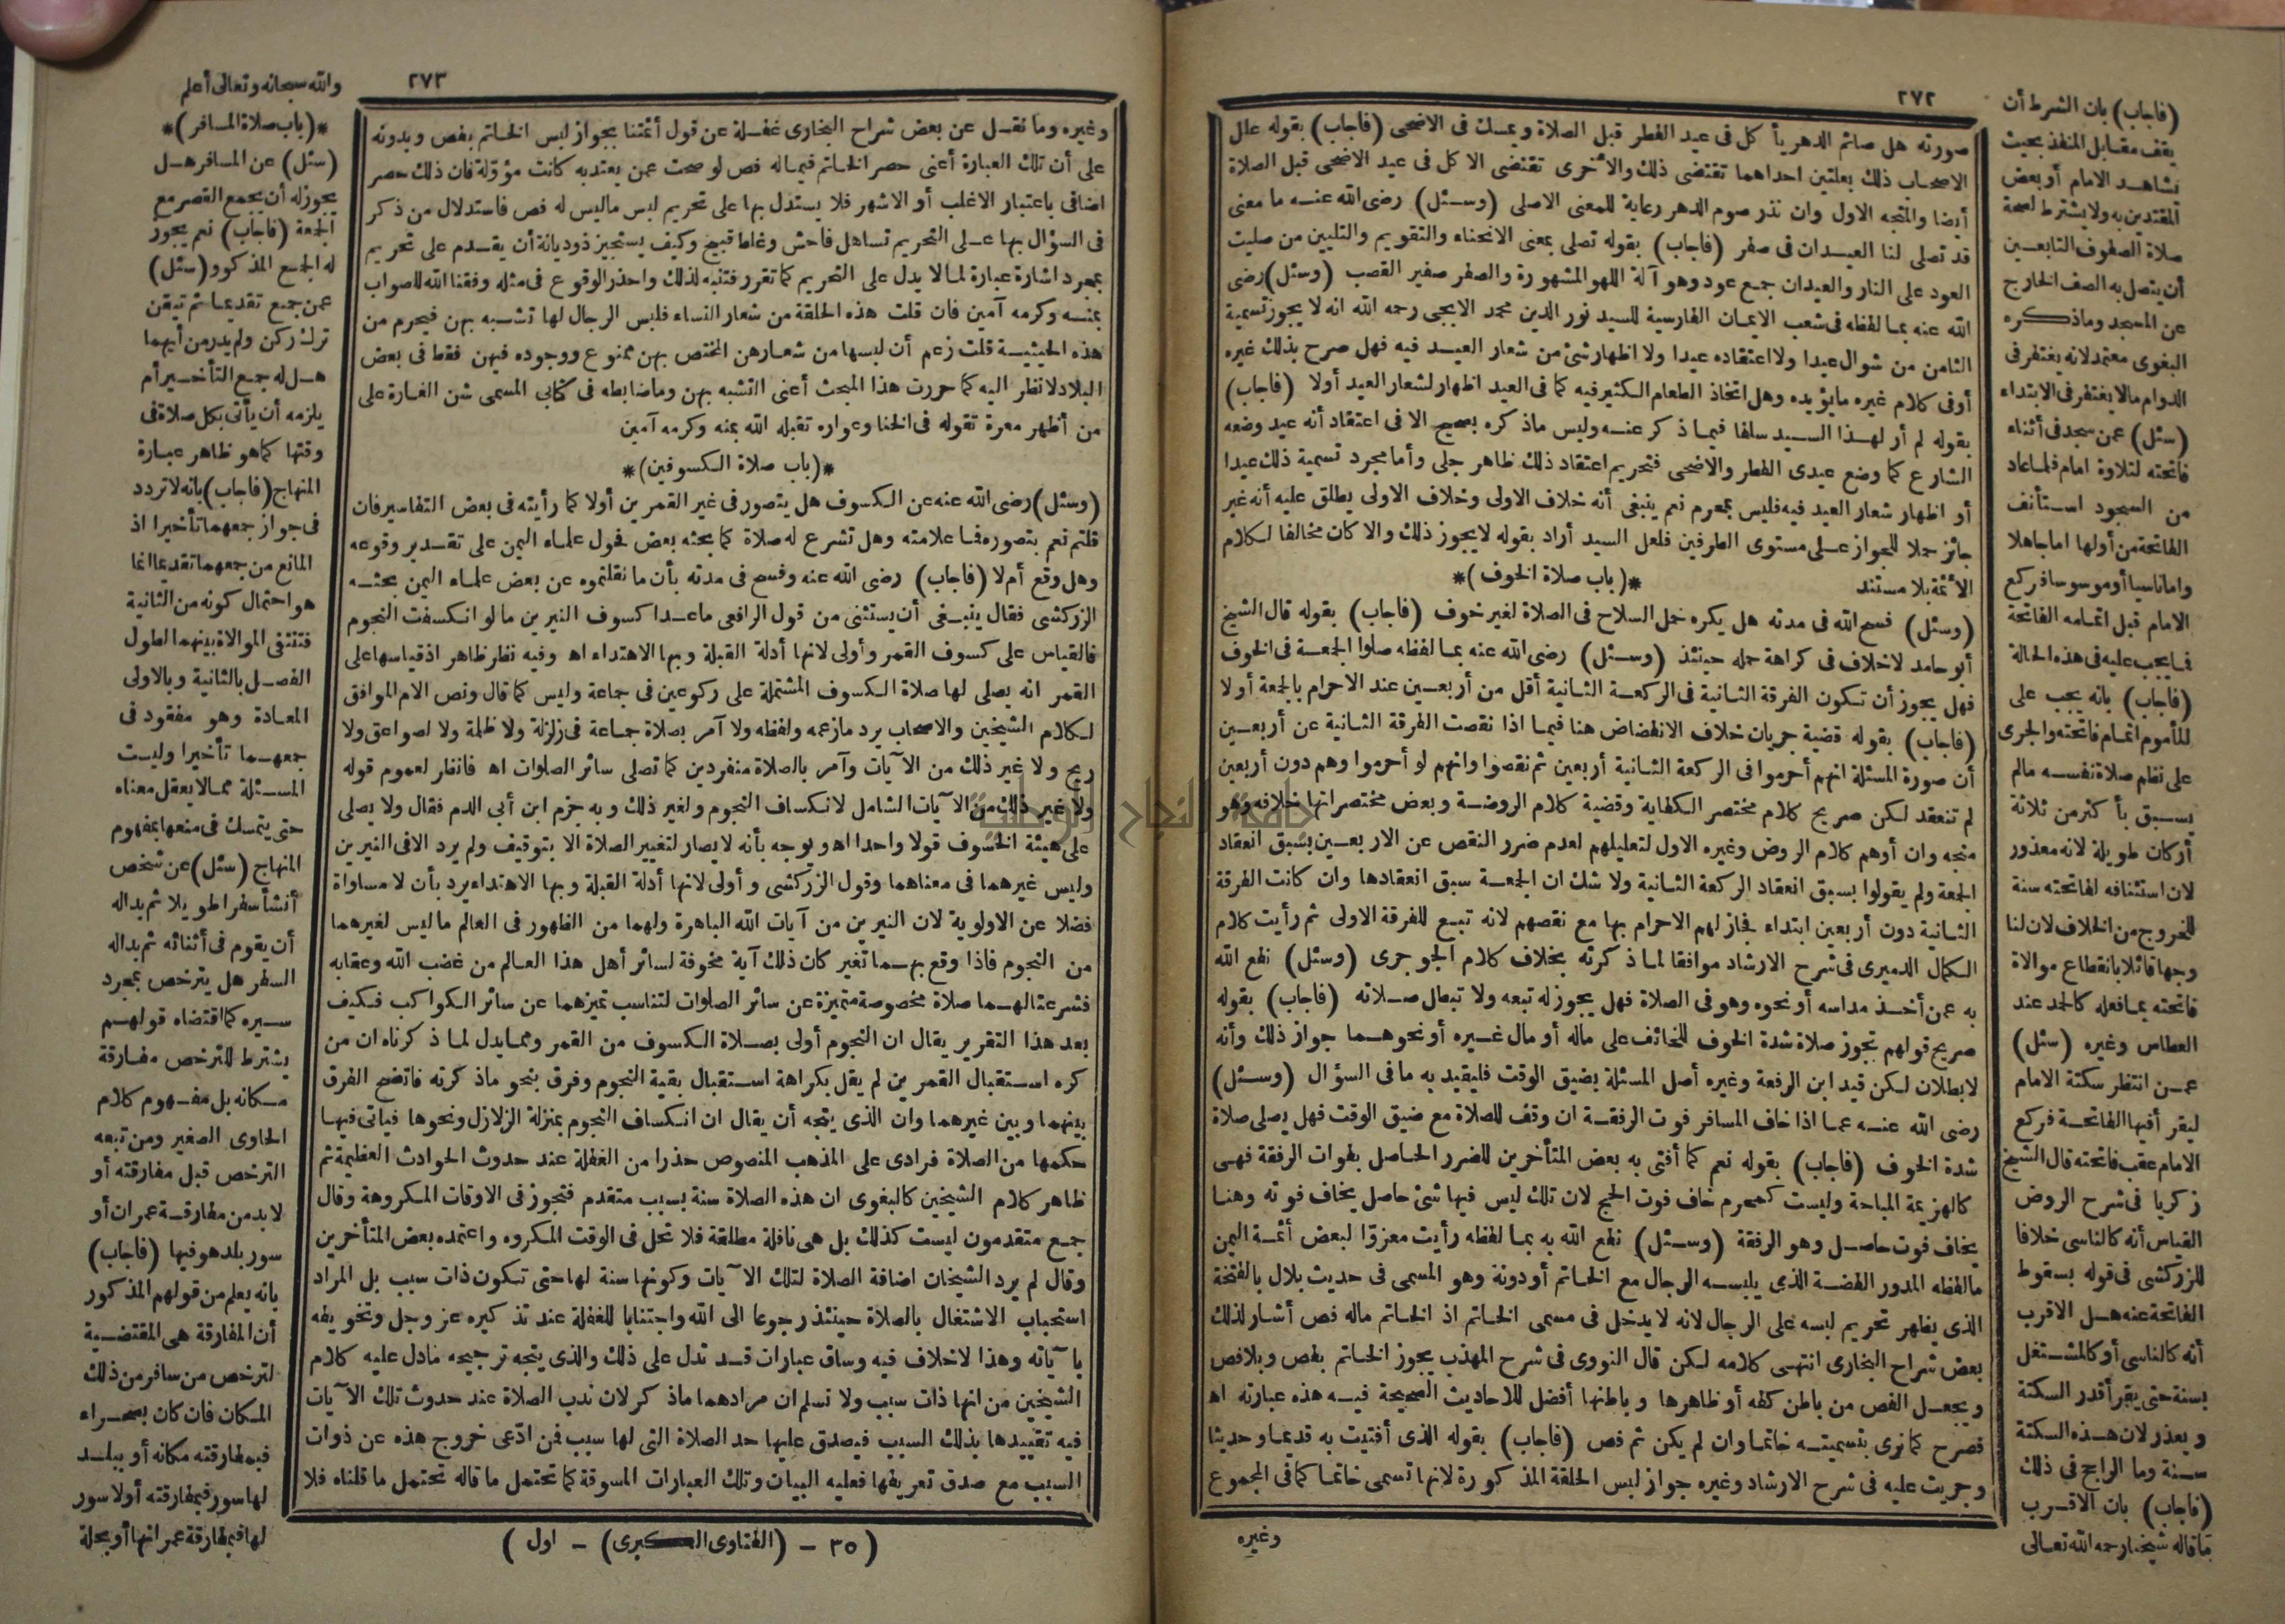 ٢٧٢
صورته هل صائم الدهر يأكل فى عيد الفطر قبل الصلاة ويمسك فى الاضحى (فاجاب) بقوله علل
الاصحاب ذلك بعلتين احداهما تقتضى ذلك والأخرى تقتضى الاكل فى عيد الاضحى قبل الصلاة
أيضا والمتجه الاول وان نذر صوم الدهر رعاية للمعنى الاصلى (وسئل) رضى الله عنه ما معنى
قد تصلى لنا العيدان فى صفر (فاجاب) بقوله تصلى بمعنى الانحناء والتقويم والتليين من صليت
العود على النار والعيدان جمع عود وهو آلة اللهو المشهورة والصفر صفير القصب (وسئل) رضى
الله عنه بما لفظه فى شعب الايمان الفارسية للسيد نور الدين محمد الايجى رحمه الله انه لا يجوز تسمية
الثامن من شوال عيدا ولا اعتقاده عيدا ولا اظهار شئ من شعار العيد فيه فهل صرح بذلك غيره
أوفى كلام غيره مايؤيده وهل اتخاذ الطعام الكثير فيه كما فى العيد اظهار لشعار العيد أولا (فاجاب)
بقوله لم أر لهذا السيد سلفا فيما ذكر عنه وليس ماذكره بصحيح الا فى اعتقاد أنه عيد وضعه
الشارع كما وضع عيدى الفطر والاضحى فتحريم اعتقاد ذلك ظاهر جلى وأما مجرد تسمية ذلك عيدا
أو اظهار شعار العيد فيه فليس بمحرم نعم ينبغى أنه خلاف الاولى وخلاف الاولى يطلق عليه أنه غير
جائز حملا للجواز على مستوى الطرفين فلعل السيد أراد بقوله لا يجوز ذلك والا كان مخالفا لكلام
الأئمة بلا مستند
*(باب صلاة الخوف)*
(وسئل) فسح الله فى مدته هل يكره حمل السلاح فى الصلاة لغير خوف (فاجاب) بقوله قال الشيخ
أبو حامد لاخلاف فى كراهة حمله حينئذ (وسئل) رضى الله عنه بما لفظه صلوا الجمعة فى الخوف
فهل يجوز أن تكون الفرقة الثانية فى الركعة الثانية أقل من أربعين عند الاحرام بالجمعة أولا
(فاجاب) بقوله قضية جريان خلاف الانفضاض هنا فيما اذا نقصت الفرقة الثانية عن أربعين
أن صورة المسئلة انهم أحرموا فى الركعة الثانية أربعين ثم نقصوا وانهم لو أحرموا وهم دون أربعين
لم تنعقد لكن صريح كلام مختصر الكفاية وقضية كلام الروضة وبعض مختصراتها خلافه وهو
متجه وان أوهم كلام الروض وغيره الاول لتعليلهم لعدم ضرر النقص عن الاربعين بسبق انعقاد
الجمعة ولم يقولوا بسبق انعقاد الركعة الثانية ولا شك ان الجمعة سبق انعقادها وان كانت الفرقة
الثانية دون أربعين ابتداء فجاز لهم الاحرام بها مع نقصهم لانه تبع للفرقة الاولى ثم رأيت كلام
الكمال الدميرى فى شرح الارشاد موافقا لما ذكرته بخلاف كلام الجوجرى (وسئل) نفع الله
به عمن أخذ مداسه أو نحوه وهو فى الصلاة فهل يجوز له تبعه ولا تبطل صلاته (فاجاب) بقوله
صريح قولهم تجوز صلاة شدة الخوف للخائف على ماله أو مال غيره أو نحوهما جواز ذلك وأنه
لابطلان لكن قيد ابن الرفعة وغيره أصل المسئلة بضيق الوقت فليقيد به ما فى السؤال (وسئل)
رضى الله عنه عما اذا خاف المسافر فوت الرفقة ان وقف للصلاة مع ضيق الوقت فهل يصلى صلاة
شدة الخوف (فاجاب) بقوله نعم كما أفتى به بعض المتأخرين للضرر الحاصل بفوات الرفقة فهى
كالهزيمة المباحة وليست كمحرم خاف فوت الحج لان تلك ليس فيها شئ حاصل يخاف فوته وهنا
يخاف فوت حاصل وهو الرفقة (وسئل) نفع الله به بما لفظه رأيت معزوا لبعض أئمة اليمن
مالفظه المدور الفضة الذى يلبسه الرجال مع الخاتم أودونه وهو المسمى فى حديث بلال بالفتخة
الذى يظهر تحريم لبسه على الرجال لانه لا يدخل فى مسمى الخاتم اذ الخاتم ماله فص أشار لذلك
بعض شراح البخارى انتهى كلامه لكن قال النووى فى شرح المهذب يجوز الخاتم بفص وبلافص
ويجعل الفص من باطن كفه أو ظاهرها وباطنها أفضل للاحاديث الصحيحة فيه هذه عبارته اه
فصرح كما نرى بتسميته خاتما وان لم يكن ثم فص (فاجاب) بقوله الذى أفتيت به قديما وحديثا
وجريت عليه فى شرح الارشاد وغيره جواز لبس الحلقة المذكورة لانها تسمى خاتما كما فى المجموع
وغيره
(فاجاب) بان الشرط أن
يقف مقابل المنفذ بحيث
يشاهد الامام أو بعض
المقتدين به ولا يشترط لصحة
صلاة الصفوف التابعين
أن يتصل به الصف الخارج
عن المسجد وماذكره
البغوى معتمد لانه يغتفر فى
الدوام مالا يغتفر فى الابتداء
(سئل) عمن سجد فى أثناء
فاتحته لتلاوة امام فلما عاد
من السجود استأنف
الفاتحة من أولها اما جاهلا
واما ناسيا أو موسوسا فركع
الامام قبل اتمامه الفاتحة
فما يجب عليه فى هذه الحالة
(فاجاب) بانه يجب على
للمأموم اتمام فاتحته والجرى
على نظم صلاة نفسه مالم
يسبق بأكثر من ثلاثة
أركان طويلة لانه معذور
لان استئنافه لفاتحته سنة
للخروج من الخلاف لان لنا
وجها قائلا بانقطاع موالاة
فاتحته بما فعله كالحمد عند
العطاس وغيره (سئل)
عمن انتظر سكتة الامام
ليقرأ فيها الفاتحة فركع
الامام عقب فاتحته قال الشيخ
زكريا فى شرح الروض
القياس أنه كالناسى خلافا
للزركشى فى قوله بسقوط
الفاتحة عنه هل الاقرب
أنه كالناسى أو كالمشتغل
بسنة حتى يقرأ قدر السكتة
ويعذر لان هذه السكتة
سنة وما الراجح فى ذلك
(فاجاب) بان الاقرب
ماقاله شيخنا رحمه الله تعالى
٢٧٣
وغيره وما نقل عن بعض شراح البخارى غفلة عن قول أئمتنا بجواز لبس الخاتم بفص وبدونه
على أن تلك العبارة أعنى حصر الخاتم فيماله فص لو صحت عمن يعتد به كانت مؤولة فان ذلك حصر
اضافى باعتبار الاغلب أو الاشهر فلا يستدل بها على تحريم لبس ماليس له فص فاستدلال من ذكر
فى السؤال بها على التحريم تساهل فاحش وغلط قبيح وكيف يستجيز ذو ديانة أن يقدم على تحريم
بمجرد اشارة عبارة لما لا يدل على التحريم كما تقرر فتنبه لذلك واحذر الوقوع فى مثله وفقنا الله للصواب
بمنه وكرمه آمين فان قلت هذه الحلقة من شعار النساء فلبس الرجال لها تشبه بهن فيحرم من
هذه الحيثية قلت زعم أن لبسها من شعارهن المختص بهن ممنوع ووجوده فيهن فقط فى بعض
البلاد لا نظر اليه كما حررت هذا المبحث أعنى التشبه بهن وماضابطه فى كتابى المسمى شن الغارة على
من أظهر معرة تقوله فى الخنا وعواره تقبله الله بمنه وكرمه آمين
*(باب صلاة الكسوفين)*
(وسئل) رضى الله عنه عن الكسوف هل يتصور فى غير القمرين أولا كما رأيته فى بعض التفاسير فان
قلتم نعم يتصور فما علامته وهل تشرع له صلاة كما بحثه بعض فحول علماء اليمن على تقدير وقوعه
وهل وقع أم لا (فاجاب) رضى الله عنه وفسح فى مدته بأن ما نقلتموه عن بعض علماء اليمن بحثه
الزركشى فقال ينبغى أن يستثنى من قول الرافعى ماعدا كسوف النيرين مالو انكسفت النجوم
فالقياس على كسوف القمر وأولى لانها أدلة القبلة وبها الاهتداء اه وفيه نظر ظاهر اذ قياسها على
القمر انه يصلى لها صلاة الكسوف المشتملة على ركوعين فى جماعة وليس كما قال ونص الام الموافق
لكلام الشيخين والاصحاب يرد مازعمه ولفظه ولا آمر بصلاة جماعة فى زلزلة ولا ظلمة ولا لصواعق ولا
ريح ولا غير ذلك من الآيات وآمر بالصلاة منفردين كما تصلى سائر الصلوات اه فانظر لعموم قوله
ولا غير ذلك من الآيات الشامل لانكساف النجوم ولغير ذلك وبه جزم ابن أبى الدم فقال ولا يصلى
على هيئة الخسوف قولا واحدا اه ويوجه بأنه لا يصار لتغيير الصلاة الا بتوقيف ولم يرد الا فى النيرين
وليس غيرهما فى معناهما وقول الزركشى وأولى لانها أدلة القبلة وبها الاهتداء يرد بأن لا مساواة
فضلا عن الاولوية لان النيرين من آيات الله الباهرة ولهما من الظهور فى العالم ماليس لغيرهما
من النجوم فاذا وقع بهما تغير كان ذلك آية مخوفة لسائر أهل هذا العالم من غضب الله وعقابه
فشرعتالهما صلاة مخصوصة متميزة عن سائر الصلوات لتناسب تميزهما عن سائر الكواكب فكيف
بعد هذا التقرير يقال ان النجوم أولى بصلاة الكسوف من القمر ومما يدل لما ذكرناه ان من
كره استقبال القمرين لم يقل بكراهة استقبال بقية النجوم وفرق بنحو ماذكرته فاتضح الفرق
بينهما وبين غيرهما وان الذى يتجه أن يقال ان انكساف النجوم بمنزلة الزلازل ونحوها فياتى فيها
حكمها من الصلاة فرادى على المذهب المنصوص حذرا من الغفلة عند حدوث الحوادث العظيمة ثم
ظاهر كلام الشيخين كالبغوى ان هذه الصلاة سنة بسبب متقدم فتجوز فى الاوقات المكروهة وقال
جمع متقدمون ليست كذلك بل هى نافلة مطلقة فلا تحل فى الوقت المكروه واعتمده بعض المتأخرين
وقال لم يرد الشيخان اضافة الصلاة لتلك الآيات وكونها سنة لها حتى تكون ذات سبب بل المراد
استحباب الاشتغال بالصلاة حينئذ رجوعا الى الله واجتنابا للغفلة عند تذكيره عز وجل وتخويفه
بآياته وهذا لاخلاف فيه وساق عبارات قد تدل على ذلك والذى يتجه ترجيحه مادل عليه كلام
الشيخين من انها ذات سبب ولا نسلم ان مرادهما ماذكر لان ندب الصلاة عند حدوث تلك الآيات
فيه تقييدها بذلك السبب فيصدق عليها حد الصلاة التى لها سبب فمن ادعى خروج هذه عن ذوات
السبب مع صدق تعريفها فعليه البيان وتلك العبارات المسوقة كما تحتمل ماقاله تحتمل ماقلناه فلا
(٣٥ - (الفتاوى الكبرى) - اول)
والله سبحانه وتعالى أعلم
*(باب صلاة المسافر)*
(سئل) عن المسافر هل
يجوز له أن يجمع القصر مع
الجمعة (فاجاب) نعم يجوز
له الجمع المذكور (سئل)
عمن جمع تقديما ثم تيقن
ترك ركن ولم يدر من أيهما
هل له جمع التأخير أم
يلزمه أن يأتى بكل صلاة فى
وقتها كما هو ظاهر عبارة
المنهاج (فاجاب) بانه لا تردد
فى جواز جمعهما تأخيرا اذ
المانع من جمعهما تقديما انما
هو احتمال كونه من الثانية
فتنتفى الموالاة بينهما لطول
الفصل بالثانية وبالاولى
المعادة وهو مفقود فى
جمعهما تأخيرا وليست
المسئلة مما لا يعقل معناه
حتى يتمسك فى منعها بمفهوم
المنهاج (سئل) عن شخص
أنشأ سفرا طويلا ثم بداله
أن يقوم فى أثنائه ثم بداله
السفر هل يترخص بمجرد
سيره كما اقتضاه قولهم
يشترط للترخص مفارقة
مكانه بل مفهوم كلام
الحاوى الصغير ومن تبعه
الترخص قبل مفارقته أو
لابد من مفارقة عمران أو
سور بلد هو فيها (فاجاب)
بانه يعلم من قولهم المذكور
أن المفارقة هى المقتضية
لترخص من سافر من ذلك
المكان فان كان بصحراء
فبمفارقته مكانه أو ببلد
لها سور فبمفارقته أولا سور
لها فبمفارقة عمرانها أو بحلة